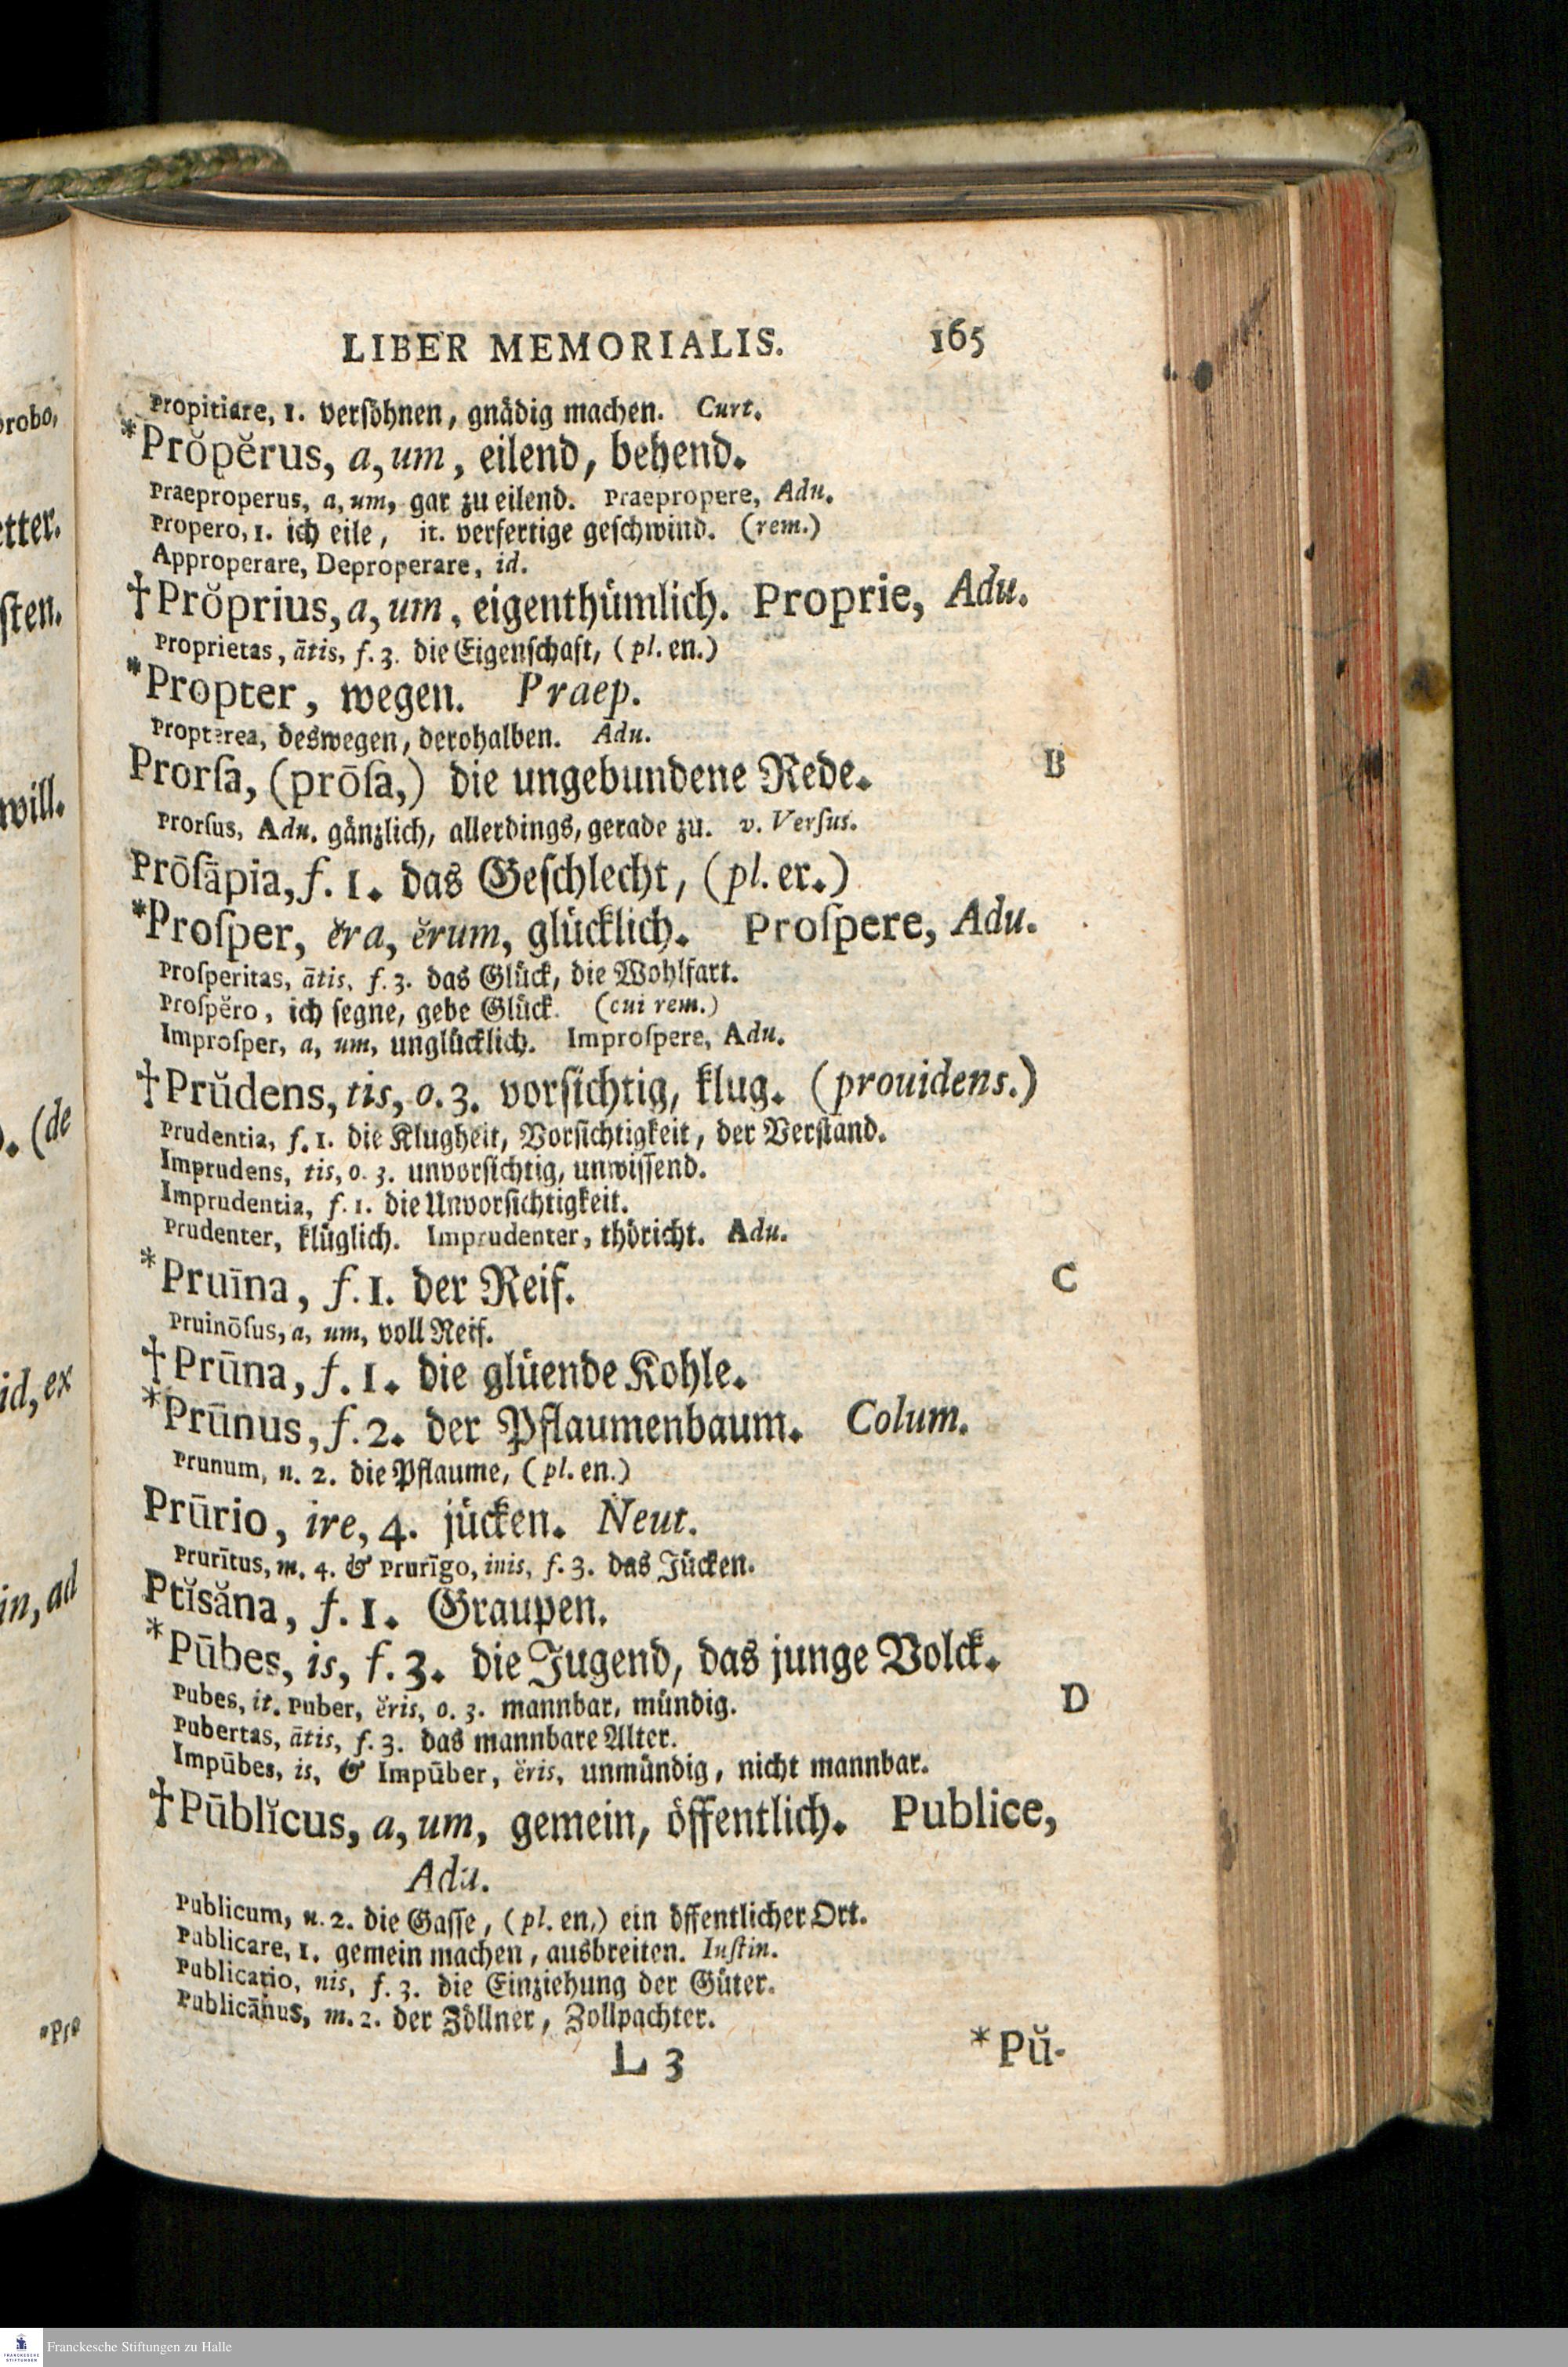 LIBER MEMORIALIS. 165
Propitiare, 1. verſöhnen, gnädig machen. Curt.
*Prŏpĕrus, a, um, eilend, behend.
Praeproperus, a, um, gar zu eilend. Praepropere, Adu.
Propero, 1. ich eile, it. verfertige geſchwind. (rem.)
Approperare, Deproperare, id.
†Prŏprius, a, um, eigenthümlich. Proprie, Adu.
Proprietas, ātis, f. 3. die Eigenſchaft, (pl. en.)
*Propter, wegen. Praep.
Propterea, deswegen, derohalben. Adu.
Prorſa, (prōſa,) die ungebundene Rede. B
Prorſus, Adu. gänzlich, allerdings, gerade zu. v. Verſus.
Prōſāpia, f. 1. das Geſchlecht, (pl. er.)
*Proſper, ĕra, ĕrum, glücklich. Proſpere, Adu.
Proſperitas, ātis, f. 3. das Glück, die Wohlfart.
Proſpĕro, ich ſegne, gebe Glück. (cui rem.)
Improſper, a, um, unglücklich. Improſpere, Adu.
†Prŭdens, tis, o. 3. vorſichtig, klug. (prouidens.)
Prudentia, f. 1. die Klugheit, Vorſichtigkeit, der Verſtand.
Imprudens, tis, o. 3. unvorſichtig, unwiſſend.
Imprudentia, f. 1. die Unvorſichtigkeit.
Prudenter, klüglich. Imprudenter, thöricht. Adu.
*Pruīna, f. 1. der Reif. C
Pruinōſus, a, um, voll Reif.
†Prūna, f. 1. die glüende Kohle.
*Prūnus, f. 2. der Pflaumenbaum. Colum.
Prunum, n. 2. die Pflaume, (pl. en.)
Prūrio, ire, 4. jücken. Neut.
Prurītus, m. 4. & Prurīgo, inis, f. 3. das Jücken.
Ptĭsăna, f. 1. Graupen.
*Pūbes, is, f. 3. die Jugend, das junge Volck.
Pubes, it. Puber, ĕris, o. 3. mannbar, mündig. D
Pubertas, ātis, f. 3. das mannbare Alter.
Impūbes, is, & Impūber, ĕris, unmündig, nicht mannbar.
†Pūblĭcus, a, um, gemein, öffentlich. Publice,
Adu.
Publicum, n. 2. die Gaſſe, (pl. en.) ein öffentlicher Ort.
Publicare, 1. gemein machen, ausbreiten. Iuſtin.
Publicatio, nis, f. 3. die Einziehung der Güter.
Publicānus, m. 2. der Zöllner, Zollpachter.
L 3 *Pŭ-
robo,
etter.
ſten.
will.
). (de
id, ex
in, ad
Franckesche Stiftungen zu Halle
FRANCKESCHE
STIFTUNGEN